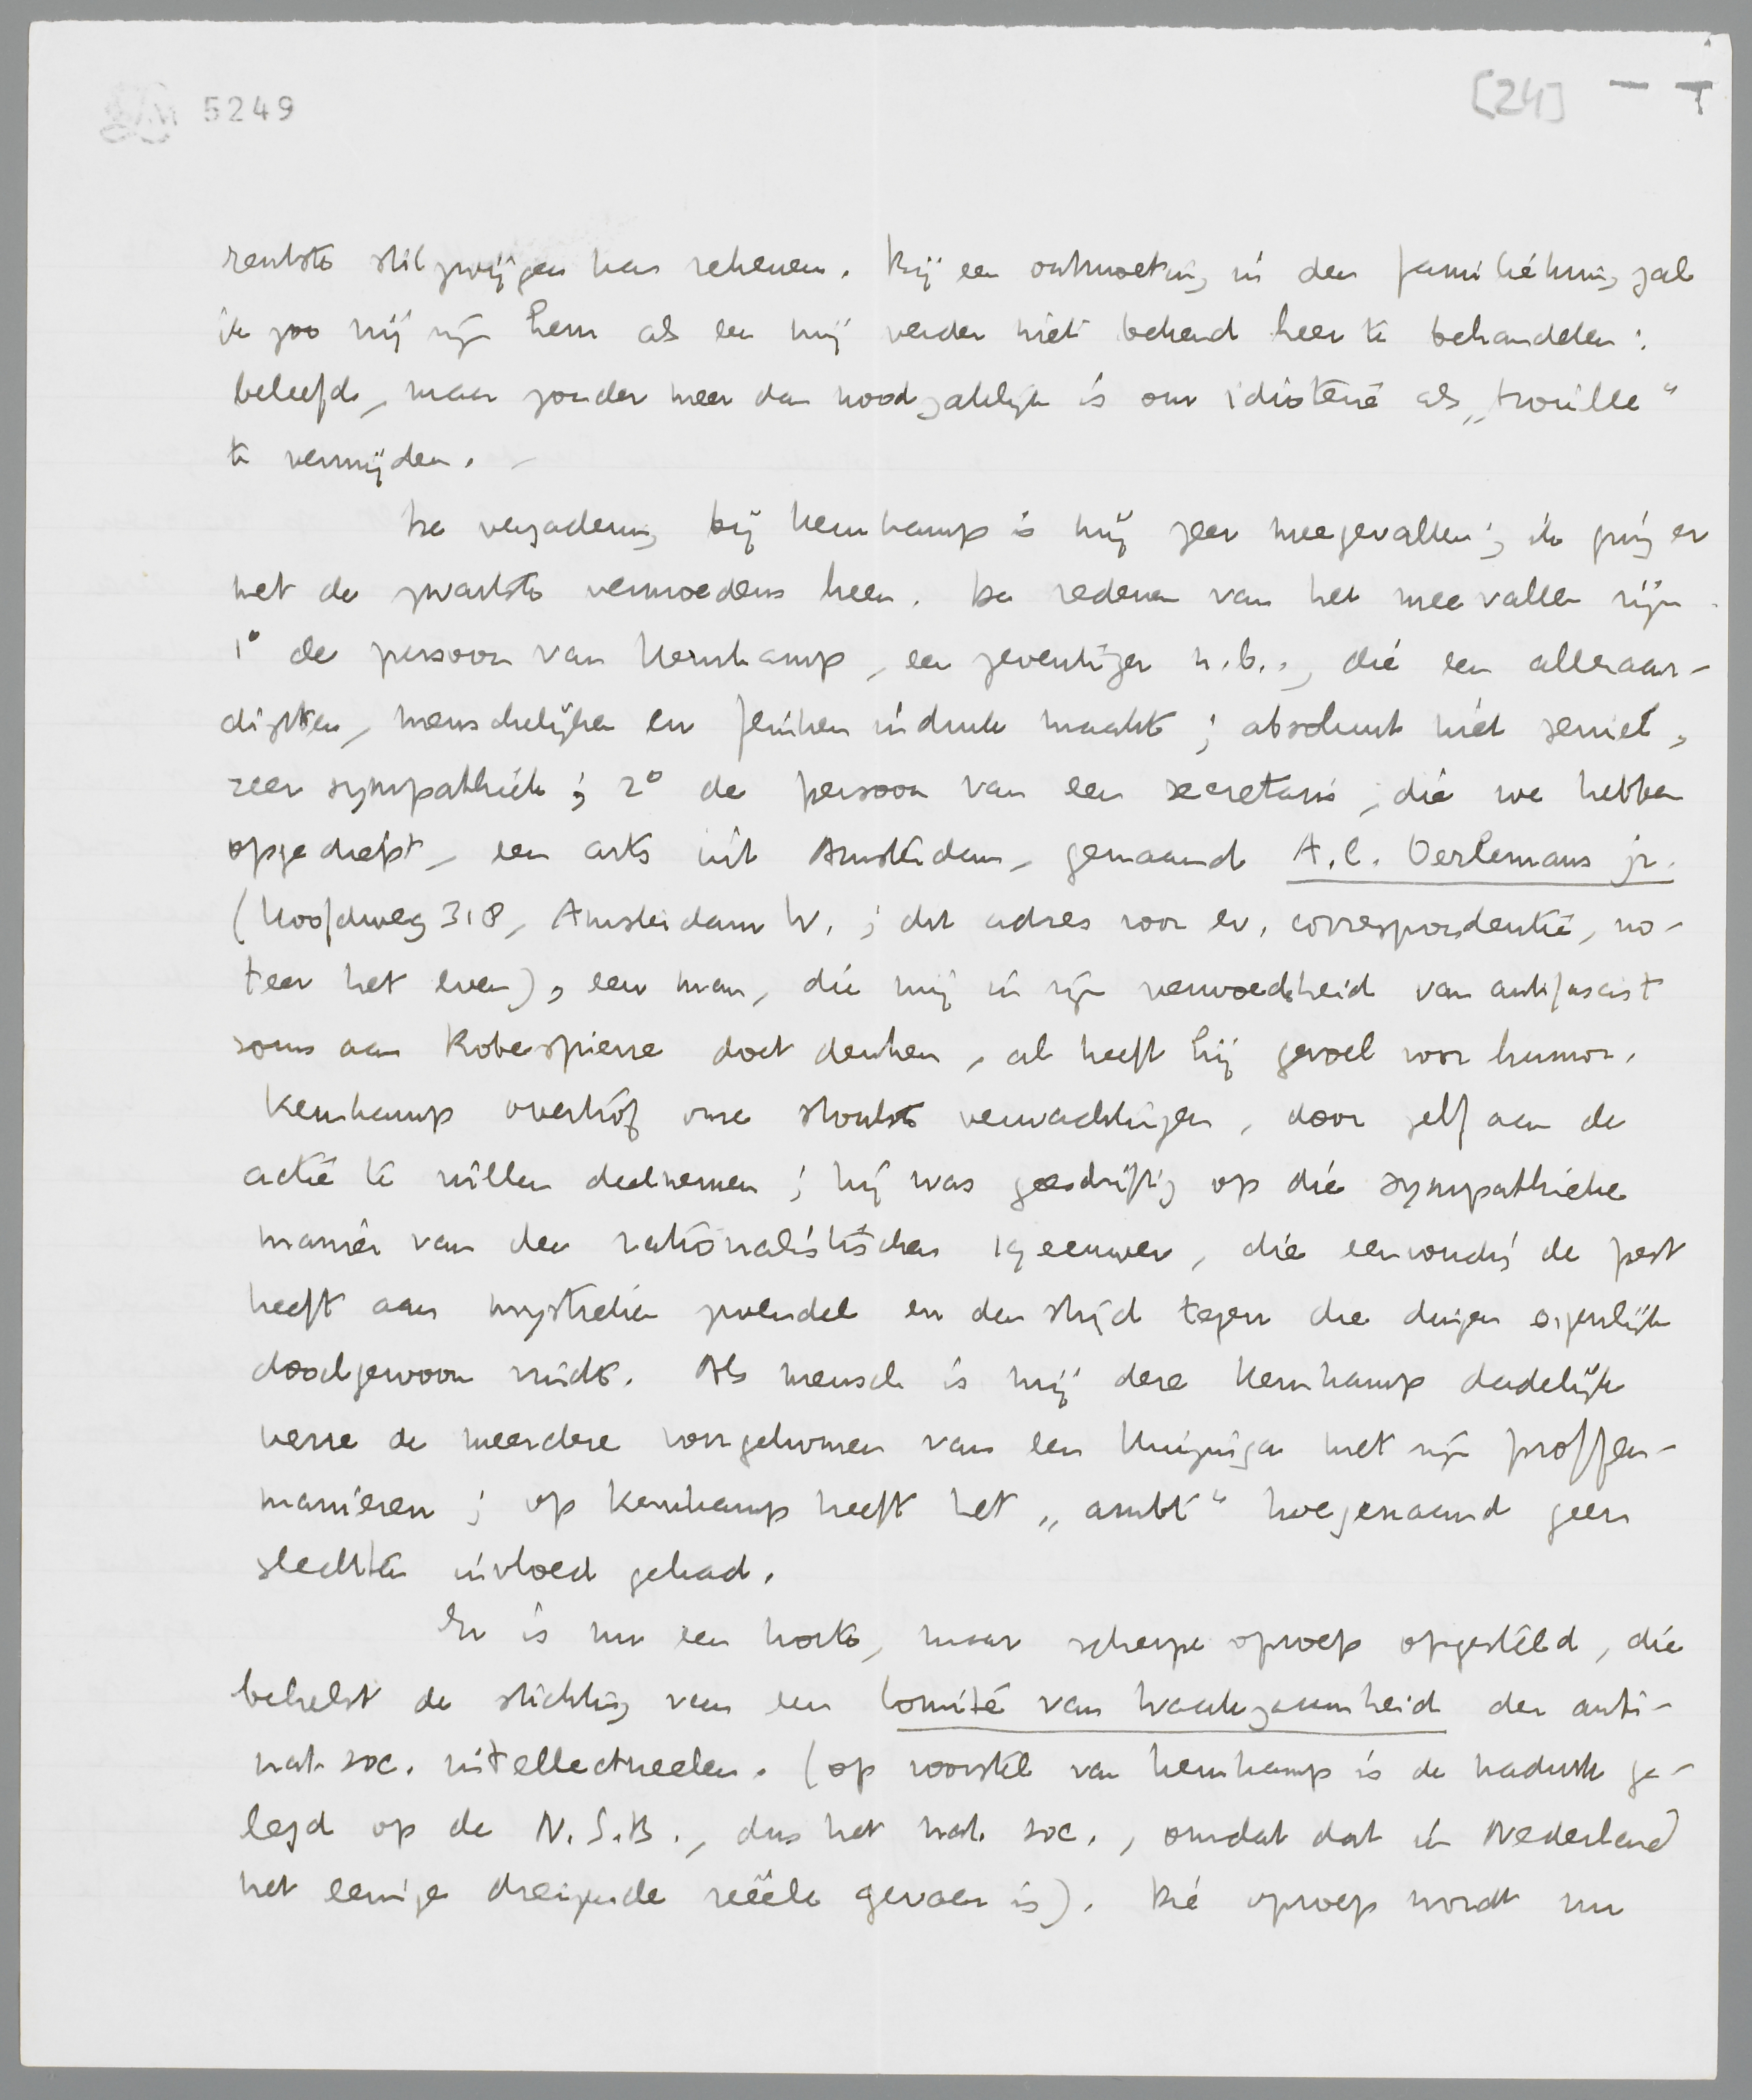 5249
[24]
renste stilzwijgen kan rekenen. Bij een ontmoeting in den familiekring zal
ik zoo vrij zijn hem als een mij verder niet bekend heer te behandelen:
beleefd, maar zonder meer dan noodzakelijk is om idioterie als „trouille"
te vermijden. –
De vergadering bij Kernkamp is mij zeer meegevallen; ik ging er
met de zwartste vermoedens heen. De redenen van het meevallen zijn
1° de persoon van Kernkamp, een zeventiger n.b., die een alleraar-
digsten, menschelijken en feinen indruk maakte; absoluut niet seniel,
zeer sympathiek; 2° de persoon van een secretaris, die we hebben
opgediept, een arts uit Amsterdam, genaamd A.C. Oerlemans jr.
(Hoofdweg 318, Amsterdam W.; dit adres voor ev. correspondentie, no-
teer het even), een man, die mij in zijn verwoedheid van antifascist
soms aan Robespierre doet denken, al heeft hij gevoel voor humor.
Kernkamp overtrof onze stoutste verwachtingen, door zelf aan de
actie te willen deelnemen; hij was geestdriftig op die sympathieke
manier van den rationalistischen 19eeuwer, die eenvoudig de pest
heeft aan mystieken zwendel en den strijd tegen die dingen eigenlijk
doodgewoon vindt. Als mensch is mij deze Kernkamp dadelijk
verre de meerdere voorgekomen van een Huizinga met zijn proffen-
manieren; op Kernkamp heeft het „ambt" hoegenaamd geen
slechten invloed gehad.
Er is nu een korte, maar scherpe oproep opgesteld, die
behelst de stichting van een Comité van Waakzaamheid der anti-
nat. soc. intellectueelen. (op voorstel van Kernkamp is de nadruk ge-
legd op de N.S.B., dus het nat. soc., omdat dat in Nederland
het eenige dreigende reëele gevaar is). Die oproep wordt nu